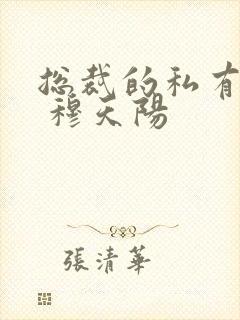 总裁的私有
穆天陽
張清華